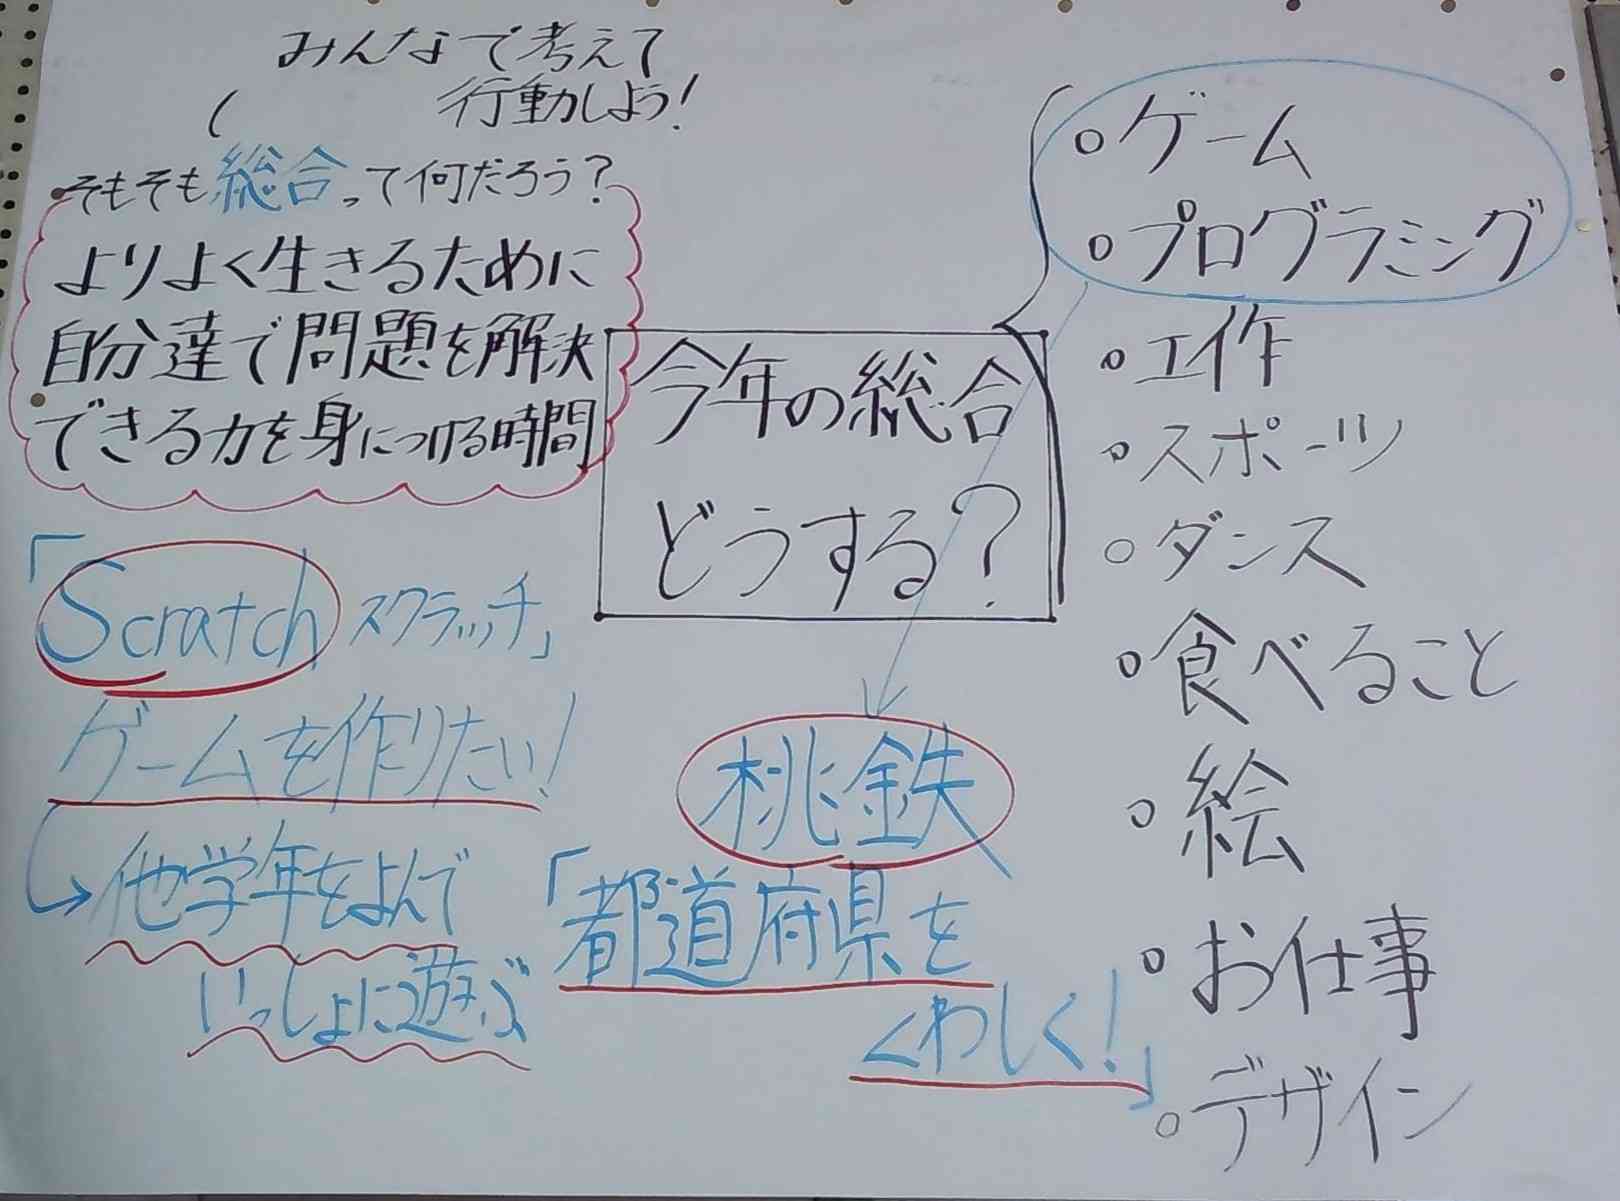 みんなで考えて
行動しよう!
そもそも総合って何だろう?
よりよく生きるために
自分達で問題を解決
できる力を身につける時間
今年の総合
どうする?
。ゲーム
。プログラミング
。工作
。スポーツ
。ダンス
。食べること
。絵
。お仕事
。デザイン
「Scratch スクラッチ」
ゲームを作りたい!
→他学年をよんで
いっしょに遊ぶ
桃鉄
「都道府県を
くわしく!」